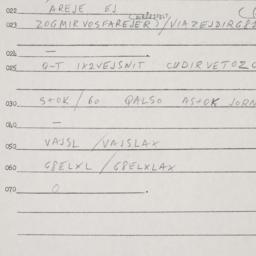 022 AREJE EJ
023 ZOGMIRVOSFAREJER)/VIAZEJDIRG8
024 —
025 Q-T 1X2VEJSNIT CUDIRVETOZO
030 STOK/60 QALSO ASTOK JORN
040 —
050 VAJSL /VAJSLAX
060 G8ELXL /G8ELXLAX
070 O